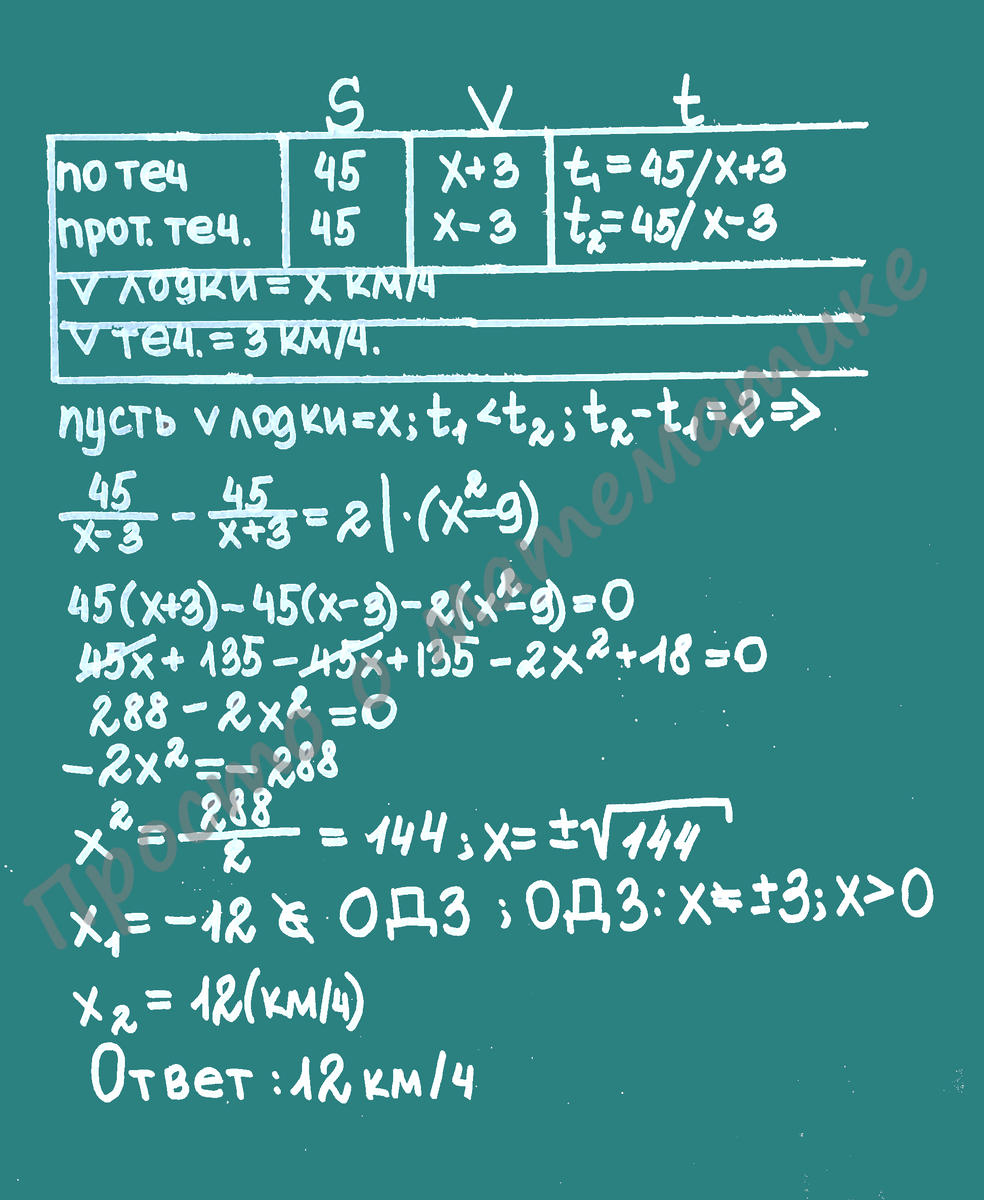 S V t
по теч 45 x+3 t₁=45/x+3
прот. теч. 45 x-3 t₂=45/x-3
v лодки = x км/ч
v теч. = 3 км/ч.
пусть v лодки=x; t₁<t₂; t₂-t₁=2=>
45/x-3 - 45/x+3 = 2|·(x²-9)
45(x+3)-45(x-3)-2(x²-9)=0
45x+135-45x+135-2x²+18=0
288-2x²=0
-2x²=-288
x²=288/2=144; x=±√144
x₁=-12 ∉ ОДЗ; ОДЗ: x≠±3; x>0
x₂=12(км/ч)
Ответ: 12 км/ч
Просто о математике